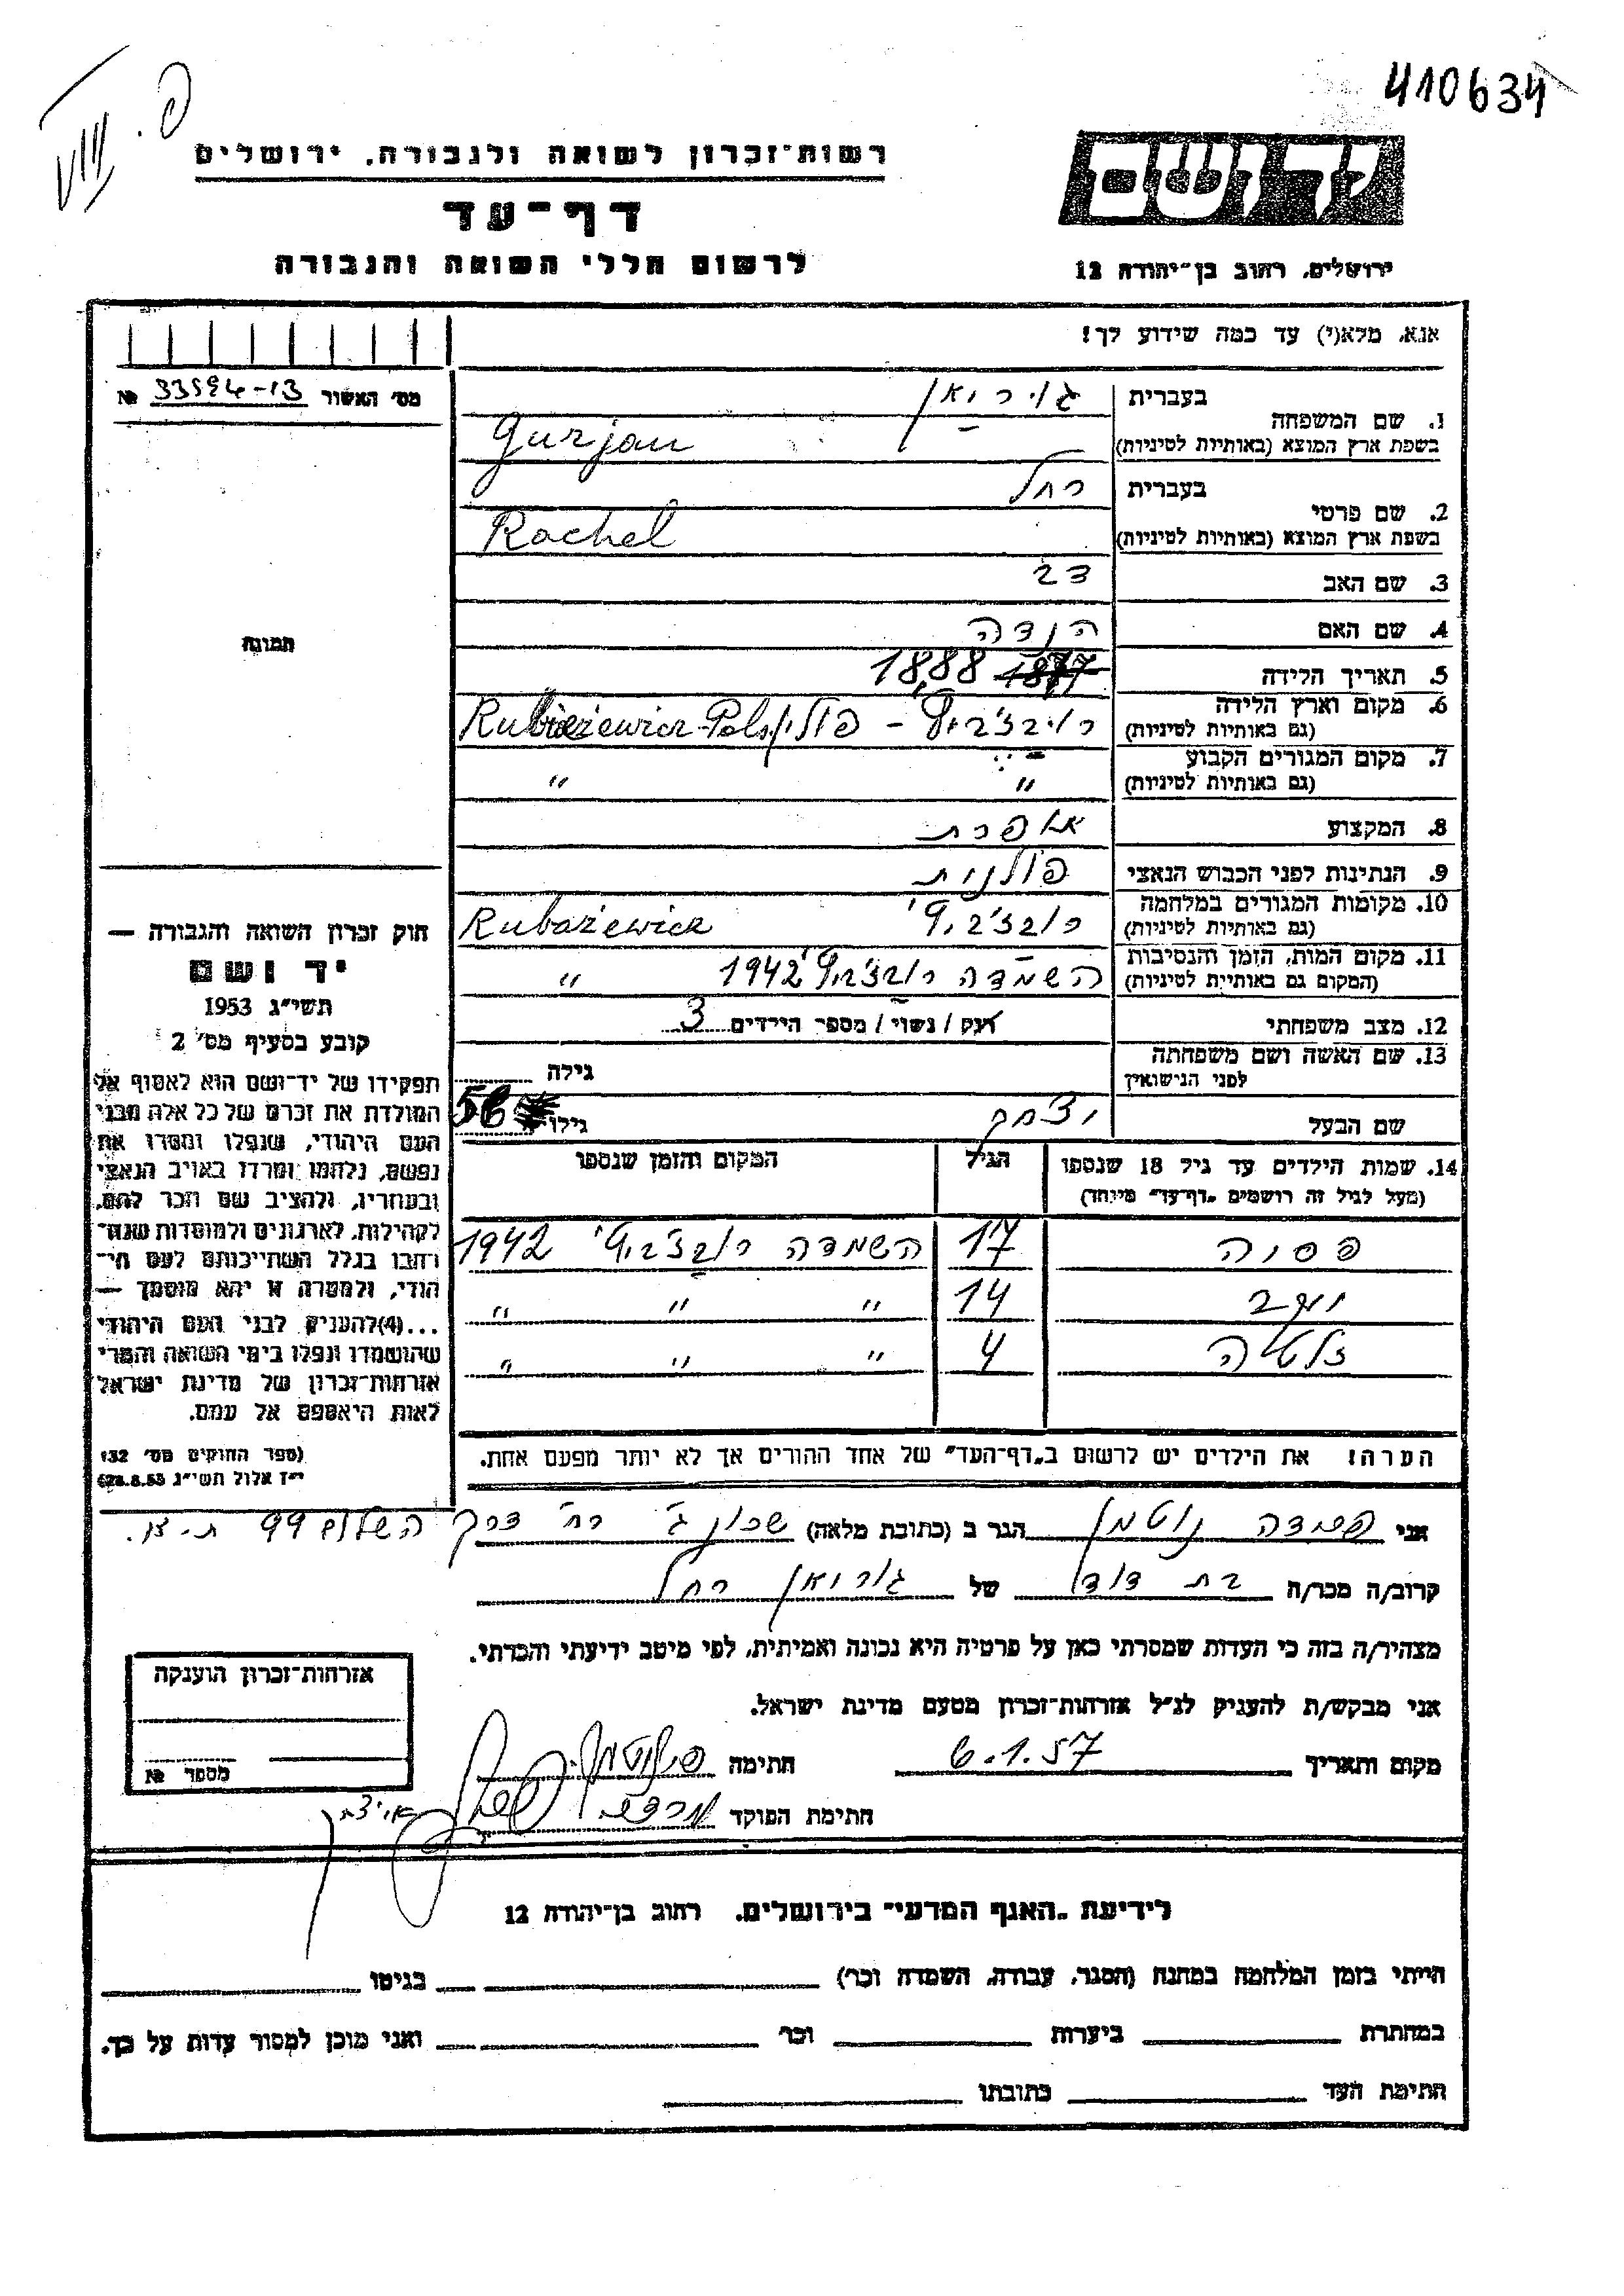 410634
פ. VIII
ידושם
רשות־זכרון לשואה ולגבורה, ירושלים
דף־עד
לרשום חללי השואה והגבורה
ירושלים, רחוב בן־יהודה 12
אנא, מלא(י) עד כמה שידוע לך!
מס׳ האשור 33594-13 №
1. שם המשפחה בעברית גוריאן
בשפת ארץ המוצא (באותיות לטיניות) Gurjan
2. שם פרטי בעברית רחל
בשפת ארץ המוצא (באותיות לטיניות) Rachel
3. שם האב דב
4. שם האם הנדה
תמונה
5. תאריך הלידה 1877 1888
6. מקום וארץ הלידה
(גם באותיות לטיניות) רוביז׳ביץ׳ - פולין Rubieżewicz-Polska
7. מקום המגורים הקבוע
(גם באותיות לטיניות) " "
8. המקצוע אופרת
9. הנתינות לפני הכבוש הנאצי פולנית
10. מקומות המגורים במלחמה
(גם באותיות לטיניות) Rubażewicz
11. מקום המות, הזמן והנסיבות
(המקום גם באותיות לטיניות) השמדה 1942 "
12. מצב משפחתי רווק / נשוי / מספר הילדים 3
13. שם האשה ושם משפחתה
לפני הנישואין גילה
שם הבעל יצחק גילו 56
14. שמות הילדים עד גיל 18 שנספו הגיל המקום והזמן שנספו
(מעל לגיל זה רושמים „דף־עד״ מיוחד)
פסיה 17 השמדה 1942
יעקב 14 " " "
זלטיה 4 " " "
הערה: את הילדים יש לרשום ב„דף־העד״ של אחד ההורים אך לא יותר מפעם אחת.
חוק זכרון השואה והגבורה —
יד ושם
תשי״ג 1953
קובע בסעיף מס׳ 2
תפקידו של יד־ושם הוא לאסוף אל
המולדת את זכרם של כל אלה מבני
העם היהודי, שנפלו ומסרו את
נפשם, נלחמו ומרדו באויב הנאצי
ובעוזריו, ולהציב שם וזכר להם,
לקהילות, לארגונים ולמוסדות שנח־
רבו בגלל השתייכותם לעם הי־
הודי, ולמטרה זו יהא מוסמך —
...(4)להעניק לבני העם היהודי
שהושמדו ונפלו בימי השואה והמרי
אזרחות־זכרון של מדינת ישראל
לאות היאספם אל עמם.
(ספר החוקים מס׳ 132
י״ז אלול תשי״ג 28.8.53)
אני נוטמן הגר ב (כתובת מלאה) שכון ג׳ רח׳ דרך השלום 99 ת.א.
קרוב/ה מכר/ה בת דודו של גוריאן רחל
מצהיר/ה בזה כי העדות שמסרתי כאן על פרטיה היא נכונה ואמיתית, לפי מיטב ידיעתי והכרתי.
אני מבקש/ת להעניק לנ״ל אזרחות־זכרון מטעם מדינת ישראל.
מקום ותאריך 6.1.57 חתימה
חתימת הפוקד
אזרחות־זכרון הוענקה
מספר №
לידיעת „האגף המדעי״ בירושלים, רחוב בן־יהודה 12
הייתי בזמן המלחמה במחנה (הסגר, עבודה, השמדה וכו׳) בגיטו
במחתרת ביערות וכו׳ ואני מוכן למסור עדות על כך.
חתימת העד כתובתו